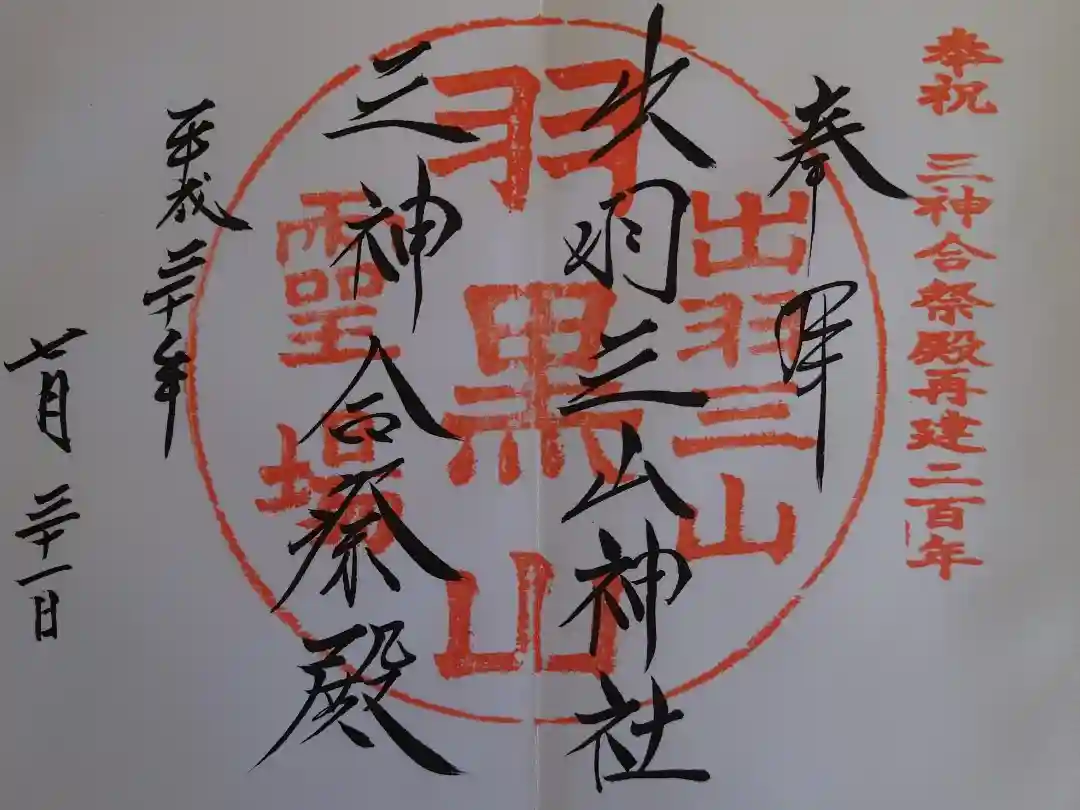 奉祝 三神合祭殿再建二百年
奉拝
出羽三山
出羽三山神社
羽黒山
三神合祭殿
霊場
平成三十年
七月三十一日